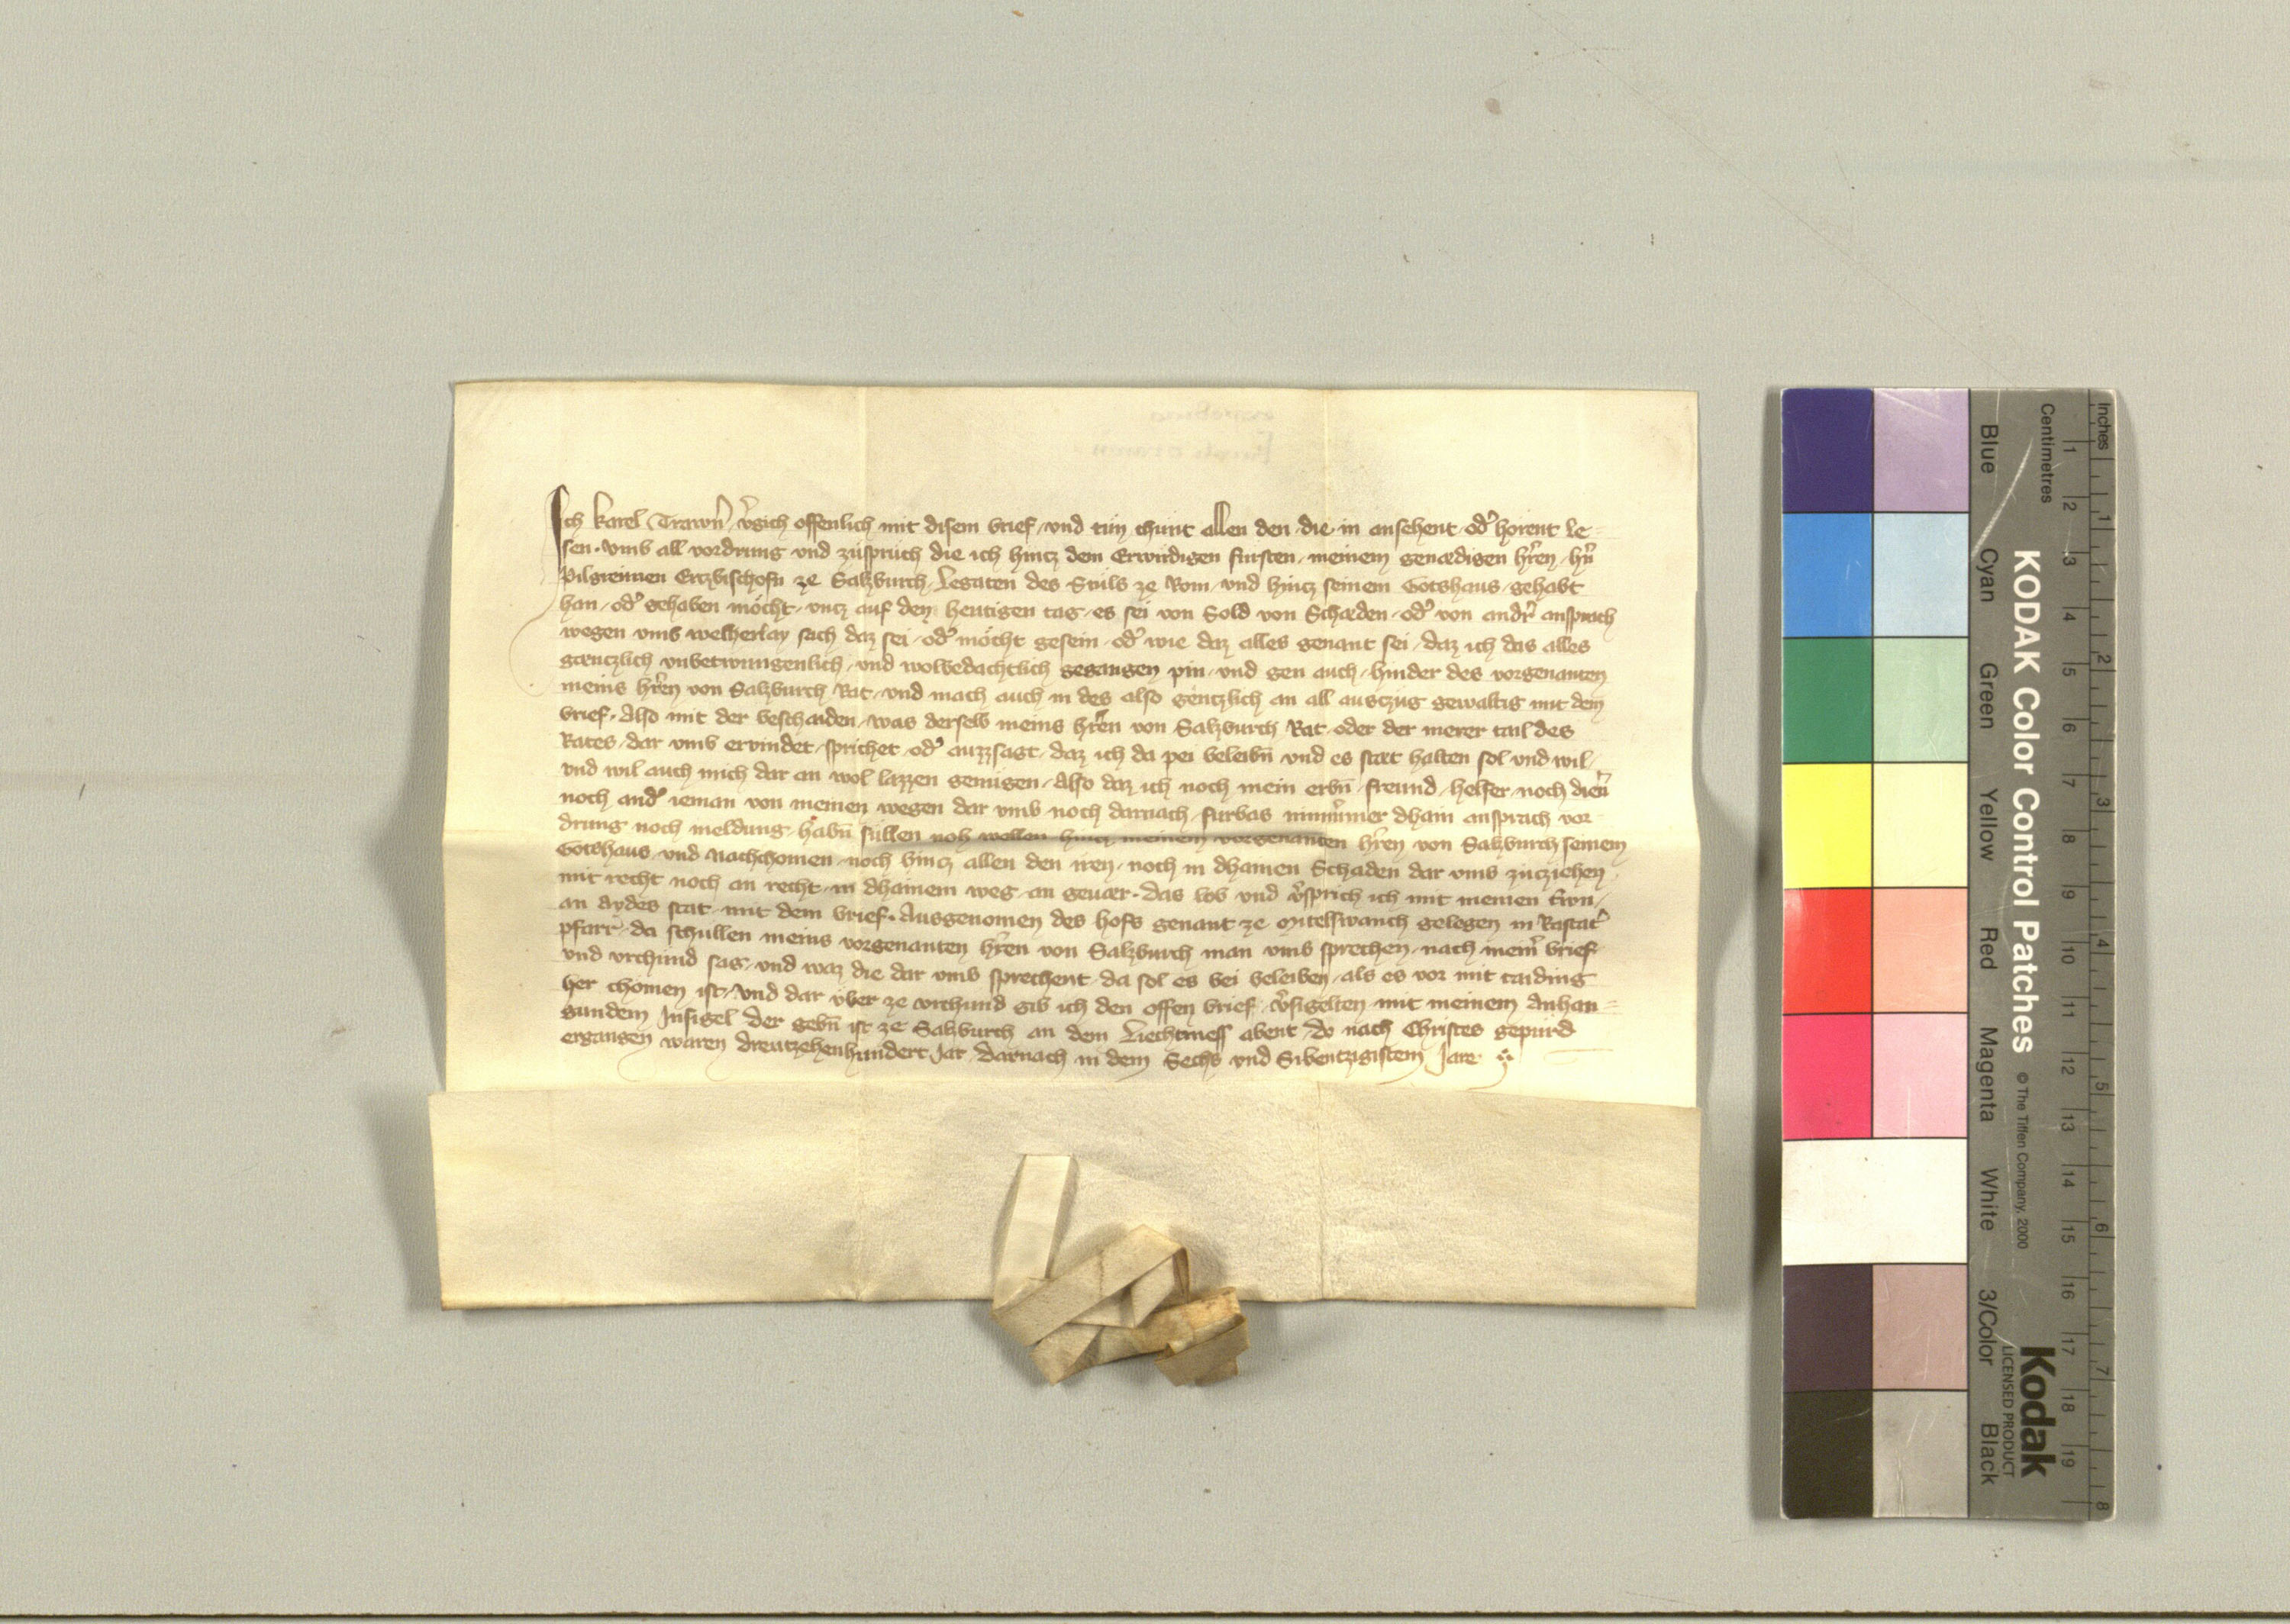 Ich karel Trawn̄ v̓gich offenlich mit disem brief, und tún chunt allen den, die in ansehent, od̓ horent le=
sen. vmb all vordrung vnd zúsprúch die ich hintz dem Erwirdigen fursten, meinem genædigen hr̓ren, hr̓n
Pilgreimen Ertzbischofn ze Salzburch, Legaten des Stúls ze Rom, vnd hintz seinem Gotshaus, gehabt
han, od̓ gehaben möcht, vntz auf den heutigen tag, es sei von Sold von Schæden, od̓ von andr̓ ansprach
wegen vmb welherlay sach daz sei, od̓ möcht gesein, od̓ wie daz alles genant sei, daz ich das alles
gæntzlich vnbetwungenlich, vnd wolbedachtlich gegangen pin, vnd gen auch, hinder des vorgenanten
meins hr̓ren von Salzburch Rat, vnd mach auch in des also gentzlich an all auszúg gewaltig mit dem
brief. Also mit der beschaiden, was derselb meins hr̓ren von Salzburch Rat, oder der merer tail des
Rates, dar vmb ervindet, sprichet, od̓ auzzsagt, daz ich da pei beleibn̄ vnd es stæt halten sol vnd wil,
vnd wil auch mich dar an wol lazzen genúgen, Also daz ich noch mein erbn̄, freund, helfer, noch dien̓
noch and̓ ieman von meinen wegen dar vmb noch darnach, furbas nimmer dhain ansprach vor
drung noch meldung, habn̄ súllen noh wellen hintz meinem vorgenanten hr̓ren von Salzburch seinem
Gotshaus, vnd Nachchomen, noch hintz allen den iren, noch in dhainen Schaden dar vmb zúcziehen,
mit recht noch an recht, in dhainem weg, an geuær. Das lob vnd v̓sprich ich mit meinen trwn,
an aydes stat, mit dem brief. Ausgenomen des hofs genant ze Mitelswanch gelegen in Rastat̓
pfarr, da schullen meins vorgenanten hr̓ren von Salzburch man vmb sprechen, nach mein̓ brief
vnd vrchund sag, vnd waz die dar vmb sprechent, da sol es bei beleiben, als es vor mit taiding
her chomen ist, vnd dar vber ze vrchund gib ich den offen brief, v̓sigelten mit meinem Anhan=
gundem Insigel der gebn̄ ist ze Salzburch an dem Liechtmess abent, do nach Christes gepurd
ergangen waren dreutzehenhundert Jar, darnach in dem Sechs vnd Sibentzigistem Jare.
KODAK Color Control Patches
© The Tiffen Company, 2000
Kodak
LICENSED PRODUCT
Blue Cyan Green Yellow Red Magenta White 3/Color Black
Centimetres 1 2 3 4 5 6 7 8 9 10 11 12 13 14 15 16 17 18 19
Inches 1 2 3 4 5 6 7 8